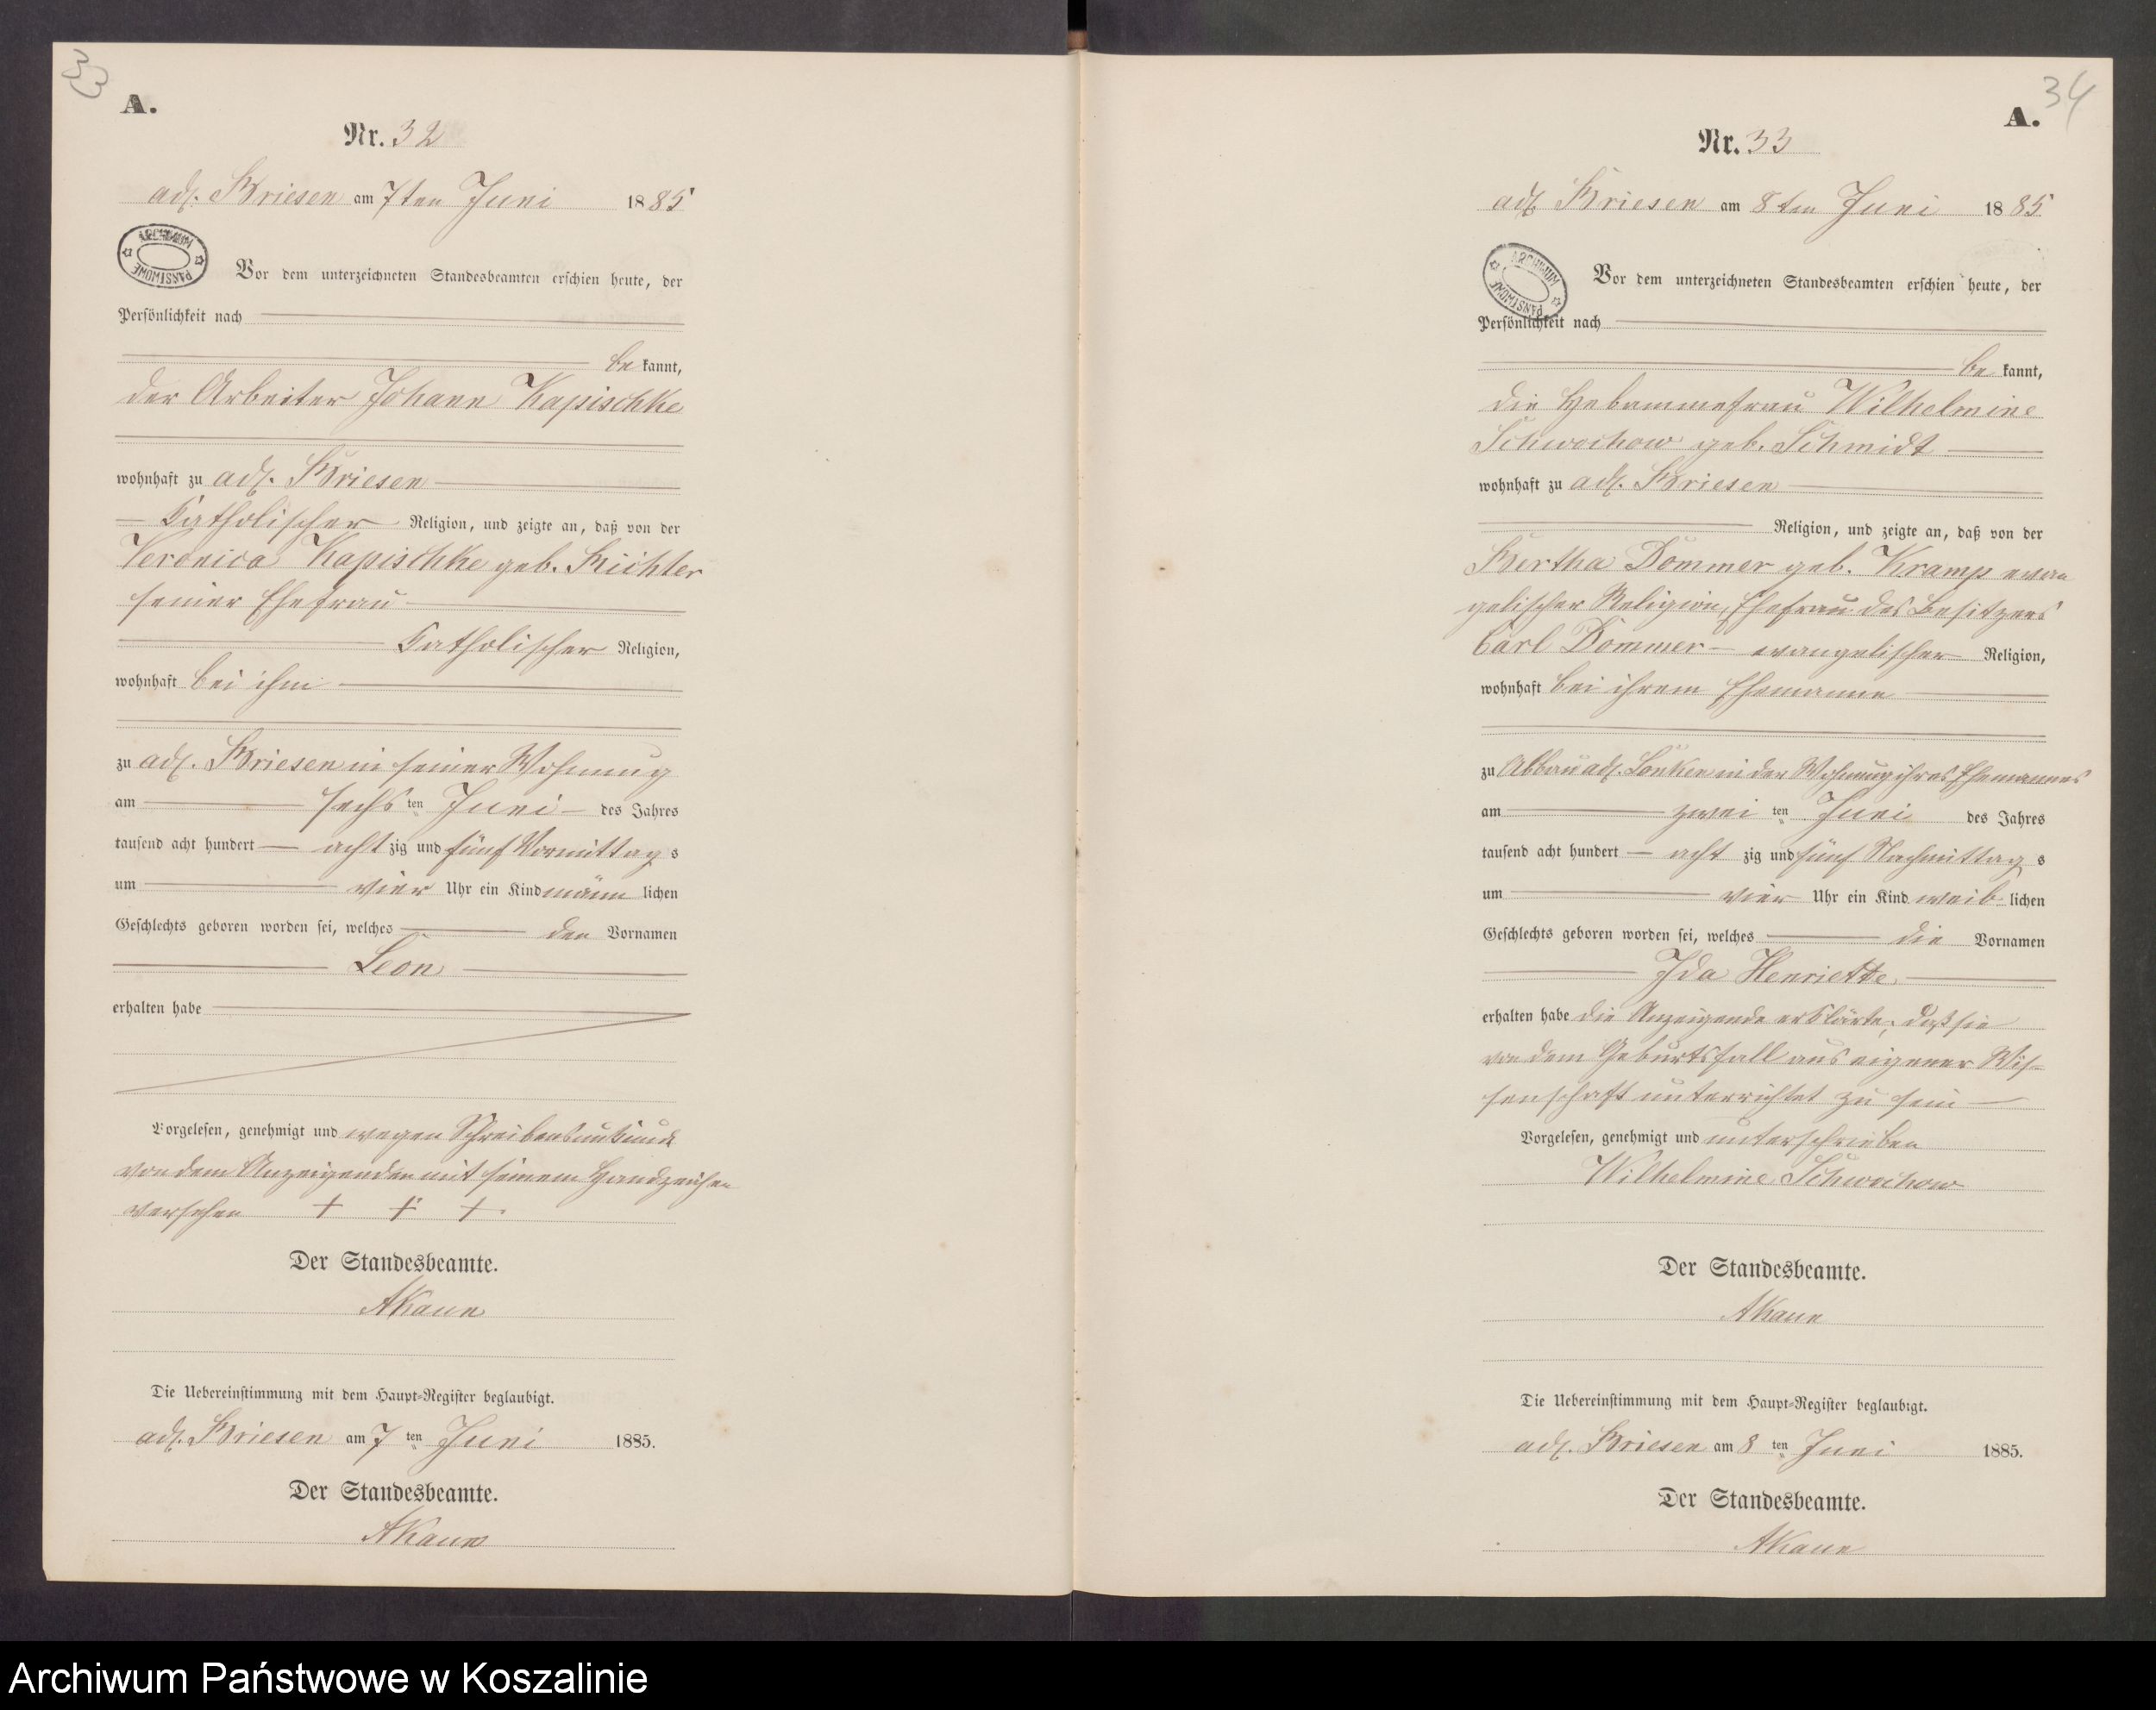 33
A.
Nr. 32
adl. Briesen am 7ten Juni 1885
ARCHIWUM PAŃSTWOWE
Vor dem unterzeichneten Standesbeamten erschien heute, der
Persönlichkeit nach
be kannt,
der Arbeiter Johann Kapischke
wohnhaft zu adl. Briesen
katholischer Religion, und zeigte an, daß von der
Veronica Kapischke geb. Richter
seiner Ehefrau
katholischer Religion,
wohnhaft bei ihm
zu adl. Briesen in seiner Wohnung
am sechs ten Juni des Jahres
tausend acht hundert acht zig und fünf Vormittag s
um vier Uhr ein Kind männ lichen
Geschlechts geboren worden sei, welches den Vornamen
Leon
erhalten habe
Vorgelesen, genehmigt und wegen Schreibensunkunde
von dem Anzeigenden mit seinem Handzeichen
versehen + + +
Der Standesbeamte.
AKaun
Die Uebereinstimmung mit dem Haupt-Register beglaubigt.
adl. Briesen am 7 ten Juni 1885.
Der Standesbeamte.
AKaun
34
A.
Nr. 33
adl Briesen am 8ten Juni 1885
ARCHIWUM PAŃSTWOWE
Vor dem unterzeichneten Standesbeamten erschien heute, der
Persönlichkeit nach
be kannt,
die Hebammefrau Wilhelmine
Schwochow geb. Schmidt
wohnhaft zu adl. Briesen
Religion, und zeigte an, daß von der
Bertha Dommer geb. Kramp evan
gelischer Religion, Ehefrau des Besitzers
Carl Dommer evangelischer Religion,
wohnhaft bei ihrem Ehemanne
zu Abbau adl. Lonken in der Wohnung ihres Ehemannes
am zwei ten Juni des Jahres
tausend acht hundert acht zig und fünf Nachmittag s
um vier Uhr ein Kind weib lichen
Geschlechts geboren worden sei, welches die Vornamen
Ida Henriette
erhalten habe die Anzeigende erklärte, daß sie
von dem Geburtsfall aus eigener Wis-
senschaft unterrichtet zu sein
Vorgelesen, genehmigt und unterschrieben
Wilhelmine Schwochow
Der Standesbeamte.
AKaun
Die Uebereinstimmung mit dem Haupt-Register beglaubigt.
adl. Briesen am 8 ten Juni 1885.
Der Standesbeamte.
AKaun
Archiwum Państwowe w Koszalinie